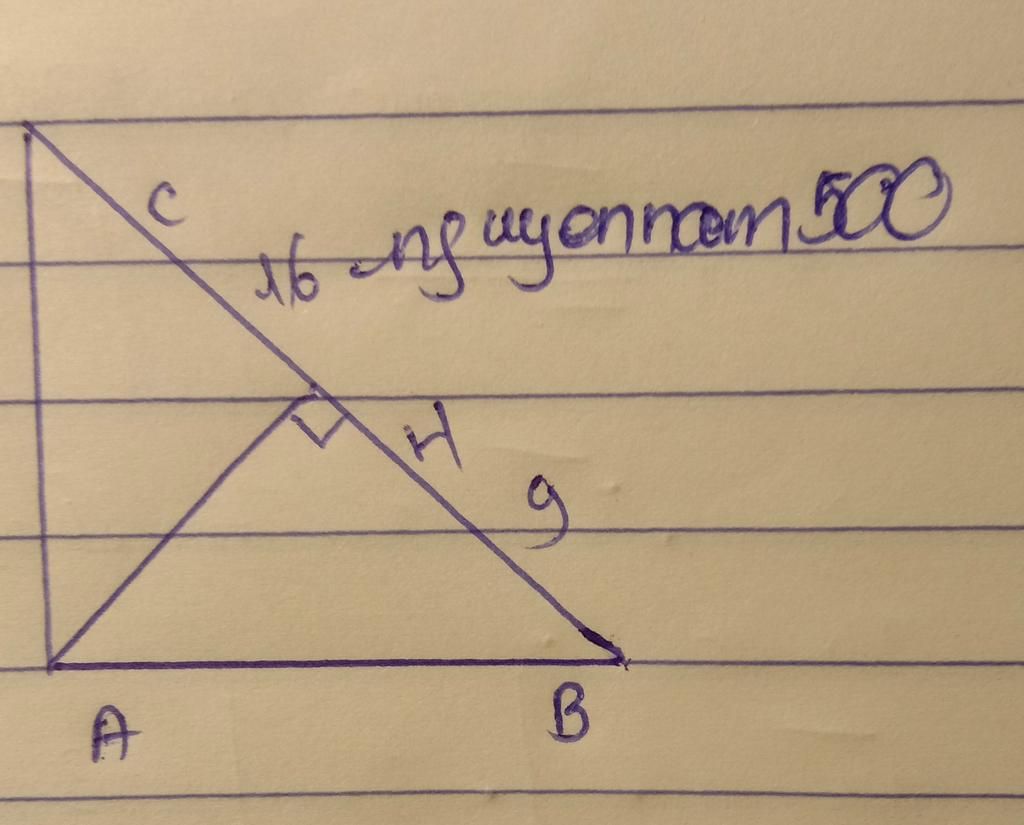 C
16 nguyennam500
H
9
A B